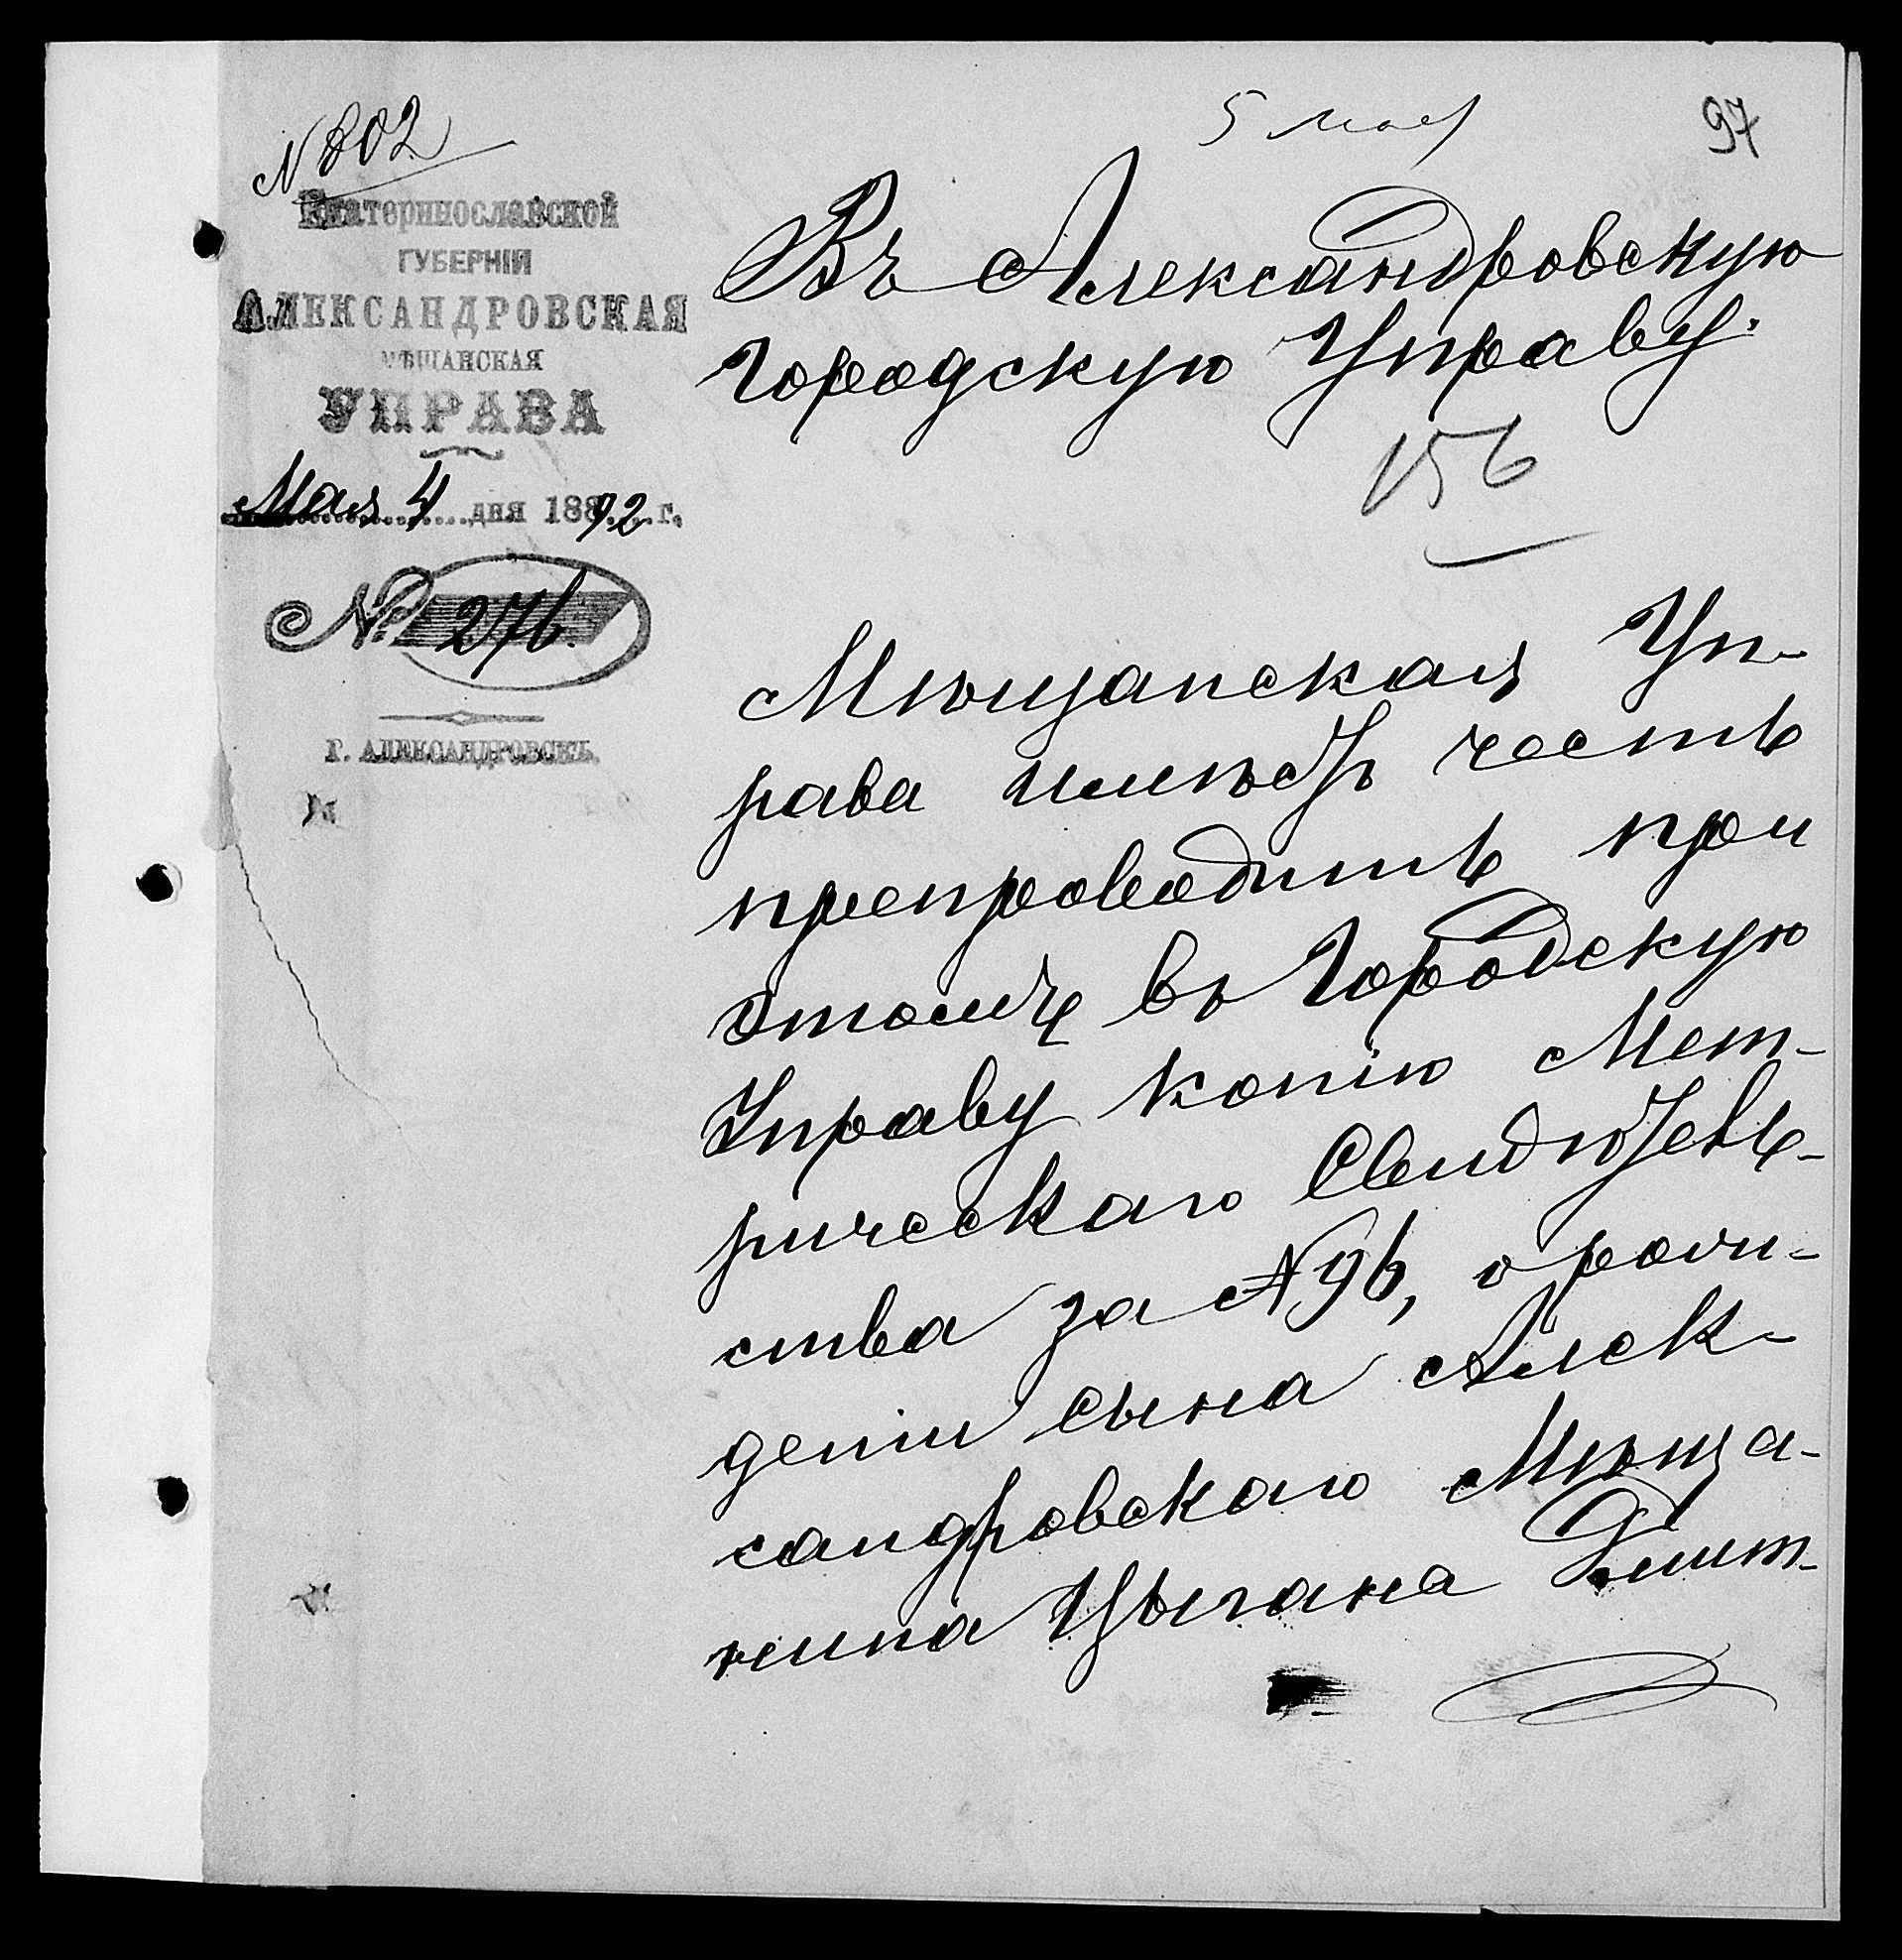 5 мая
97
№ 802
Екатеринославской
ГУБЕРНІИ
АЛЕКСАНДРОВСКАЯ
МѢЩАНСКАЯ
УПРАВА
Мая 4 дня 1892 г.
№ 276.
Г. АЛЕКСАНДРОВСКЪ.
Въ Александровскую
Городскую Управу.
156
Мѣщанская Уп-
рава имѣетъ честь
препроводить при
этомъ въ Городскую
Управу копію Мет-
рическаго Свидѣтель-
ства за № 96, о рож-
деніи сына Алек-
сандровскаго Мѣща-
нина Цыгана Дмит-